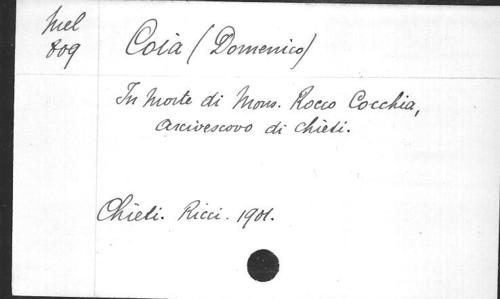 Mel
809
Coia (Domenico)
In Morte di Mons. Rocco Cocchia,
Arcivescovo di Chieti.
Chieti. Ricci. 1901.